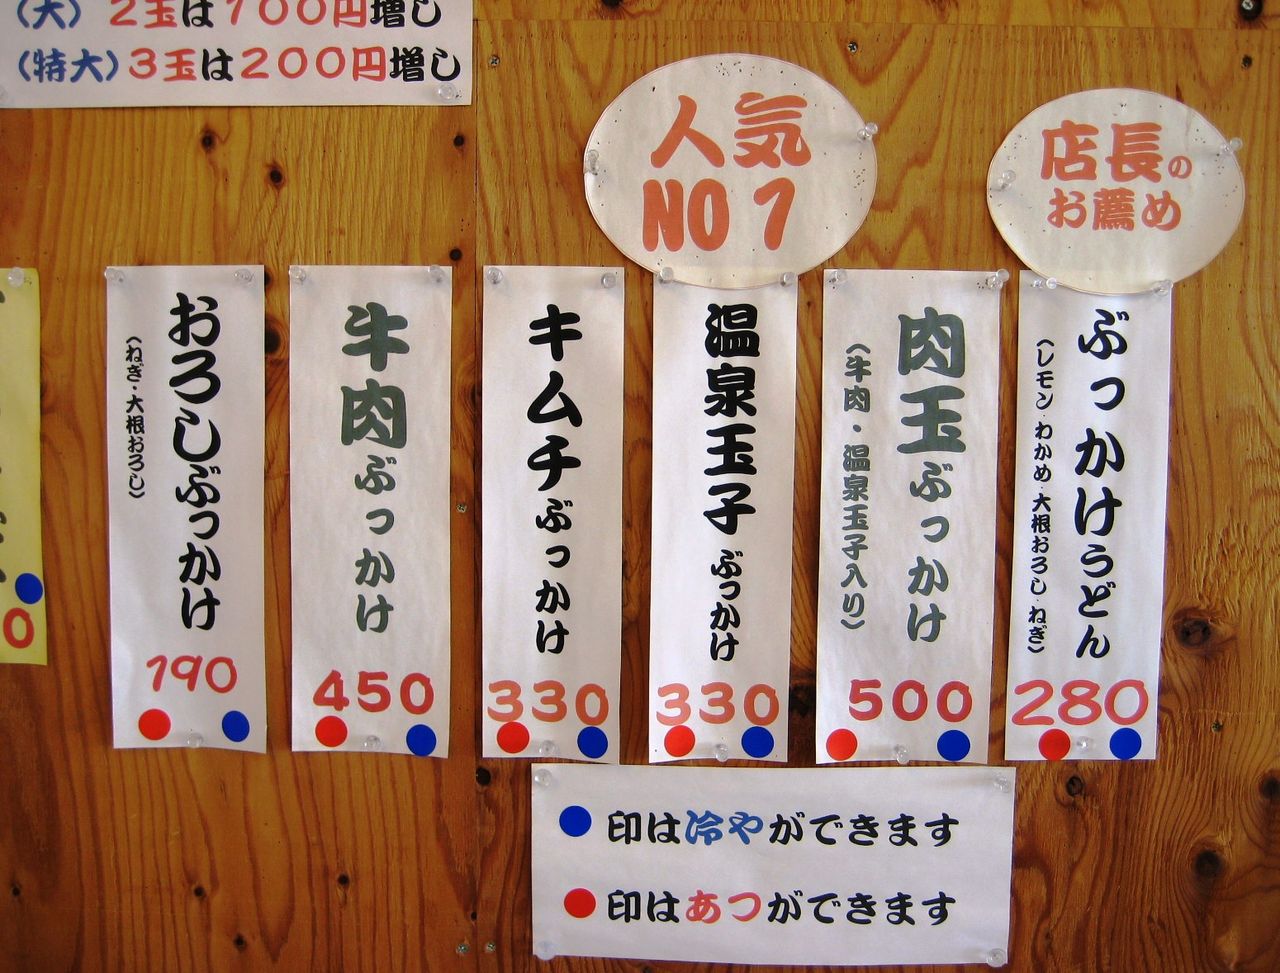 (大) 2玉は100円増し
(特大)3玉は200円増し
人気
NO1
店長の
お薦め
ぶっかけうどん
(レモン・わかめ・大根おろし・ねぎ)
280
肉玉ぶっかけ
(牛肉・温泉玉子入り)
500
温泉玉子ぶっかけ
330
キムチぶっかけ
330
牛肉ぶっかけ
450
おろしぶっかけ
(ねぎ・大根おろし)
190
0
印は冷やができます
印はあつができます